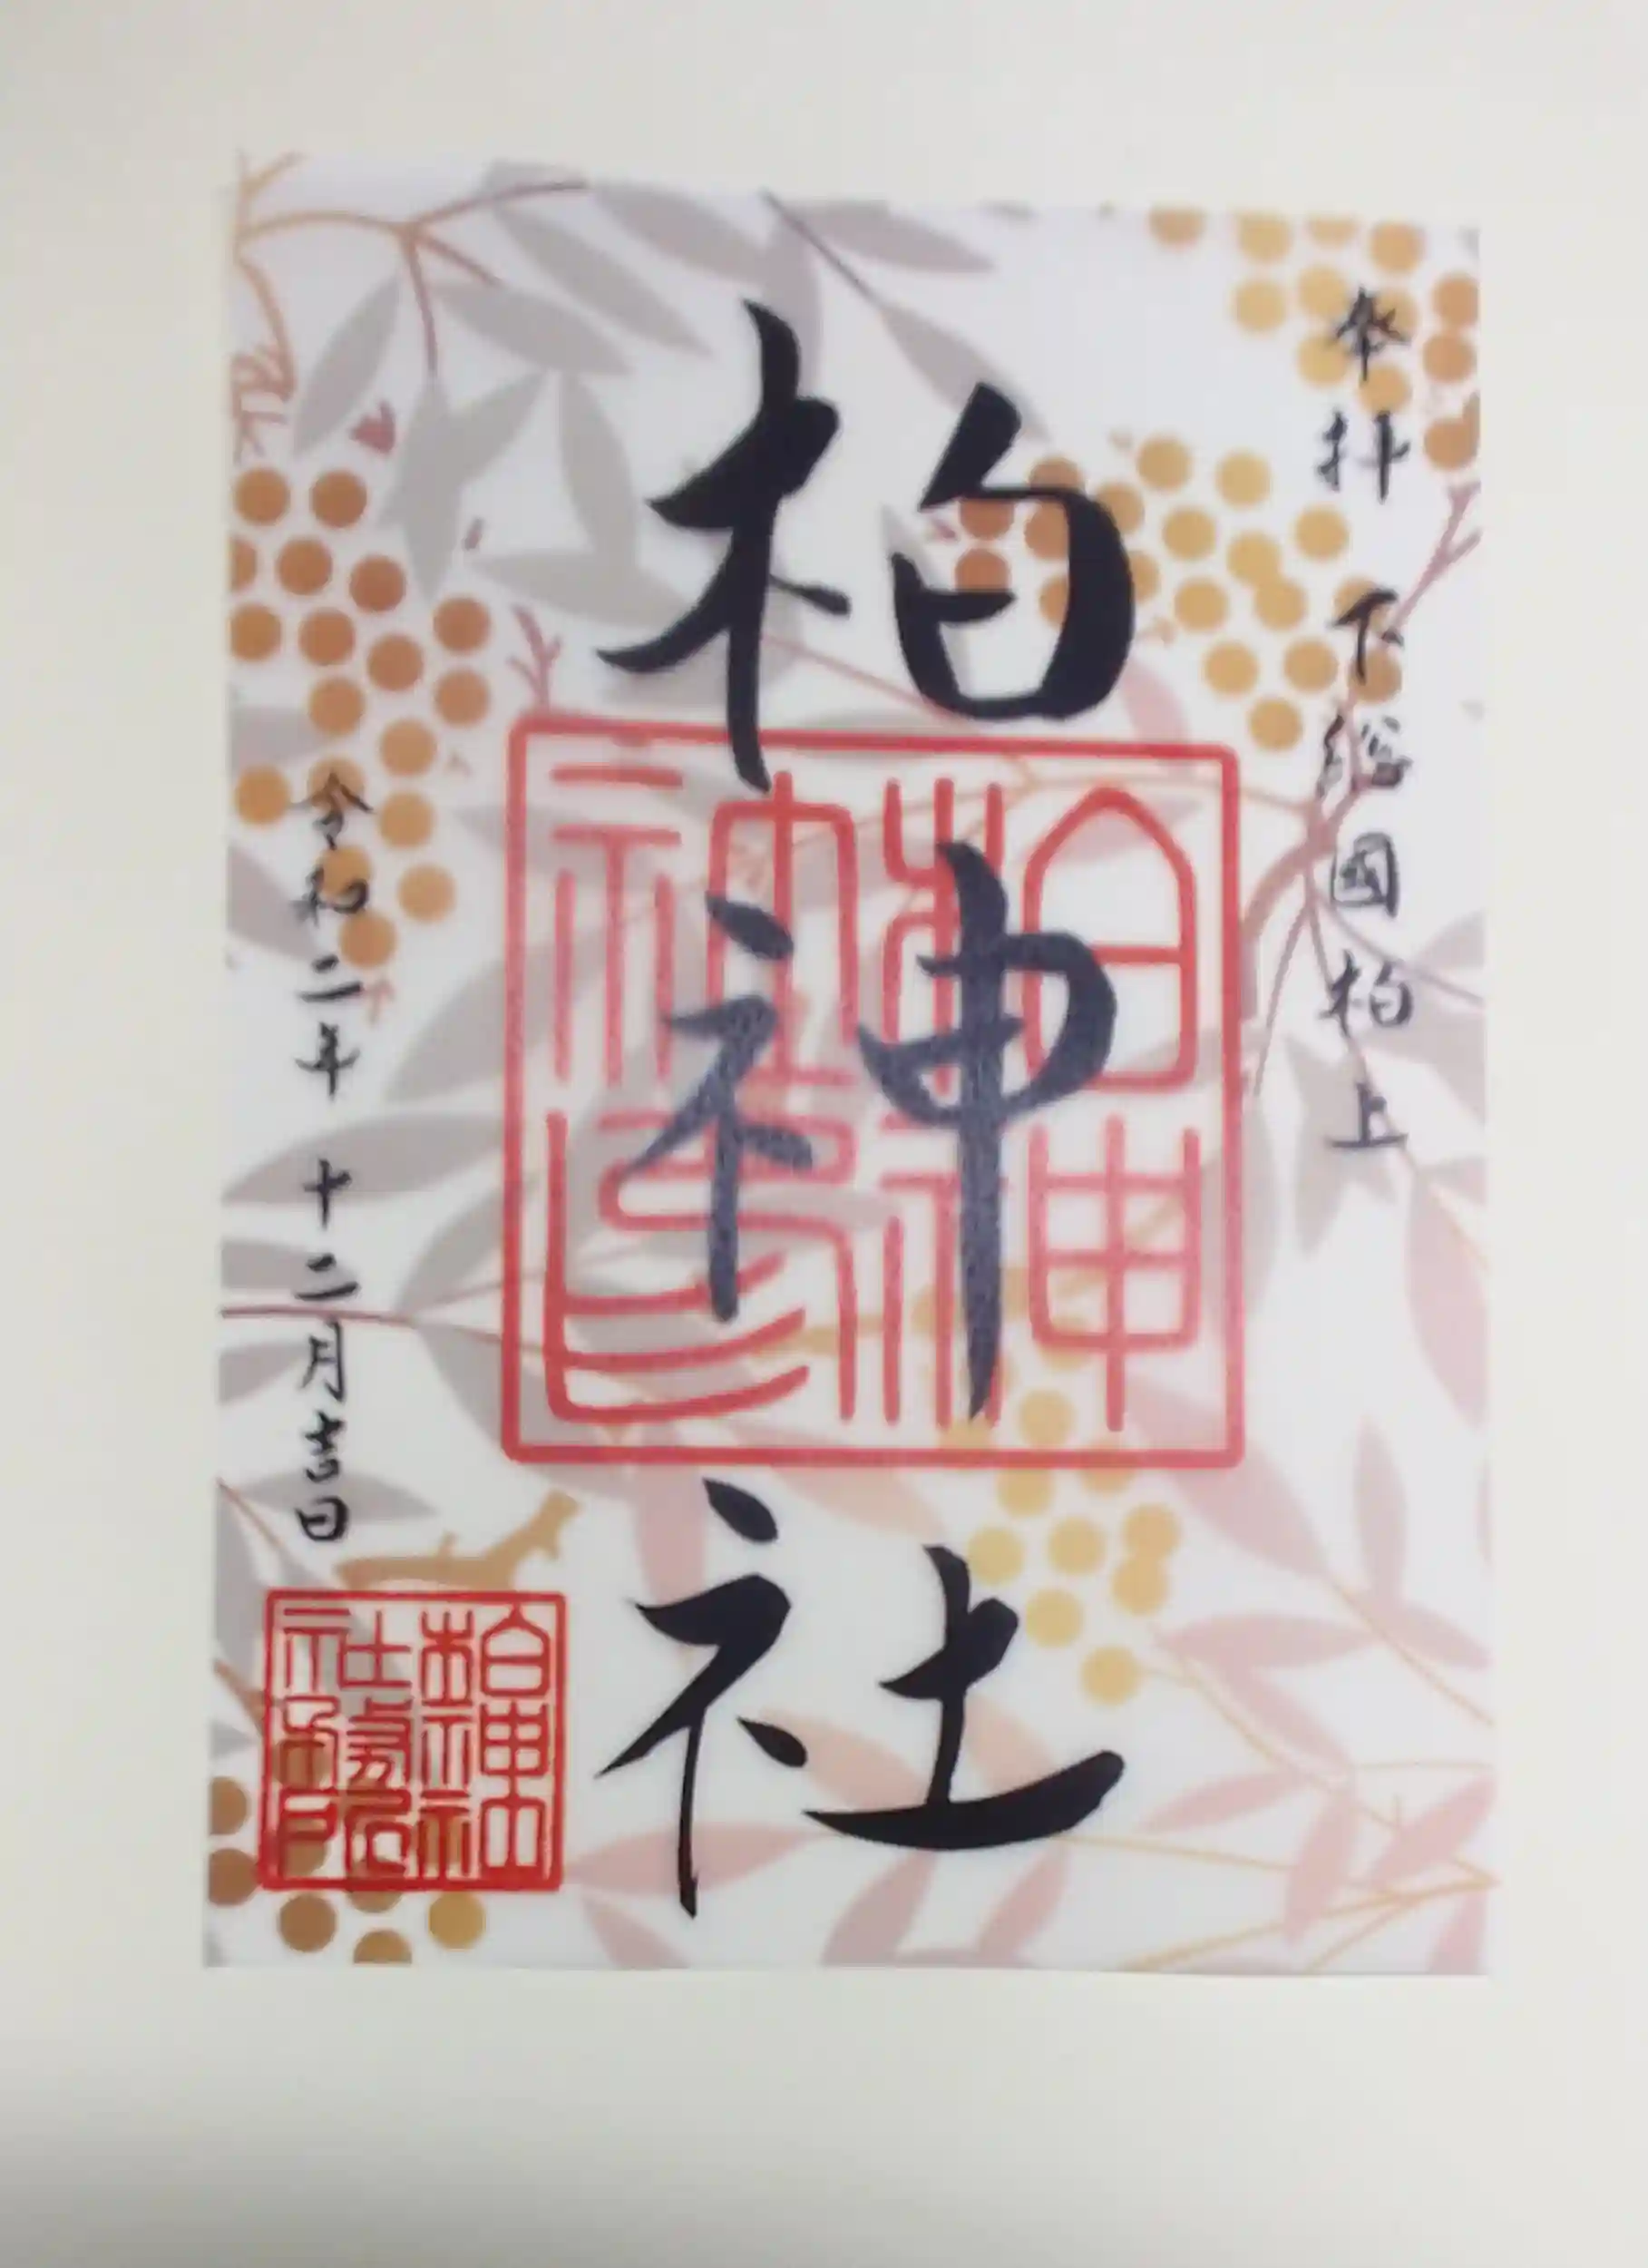 奉拝 下総國柏上
柏神社
柏神社印
令和二年 十二月吉日
柏神社
社務所